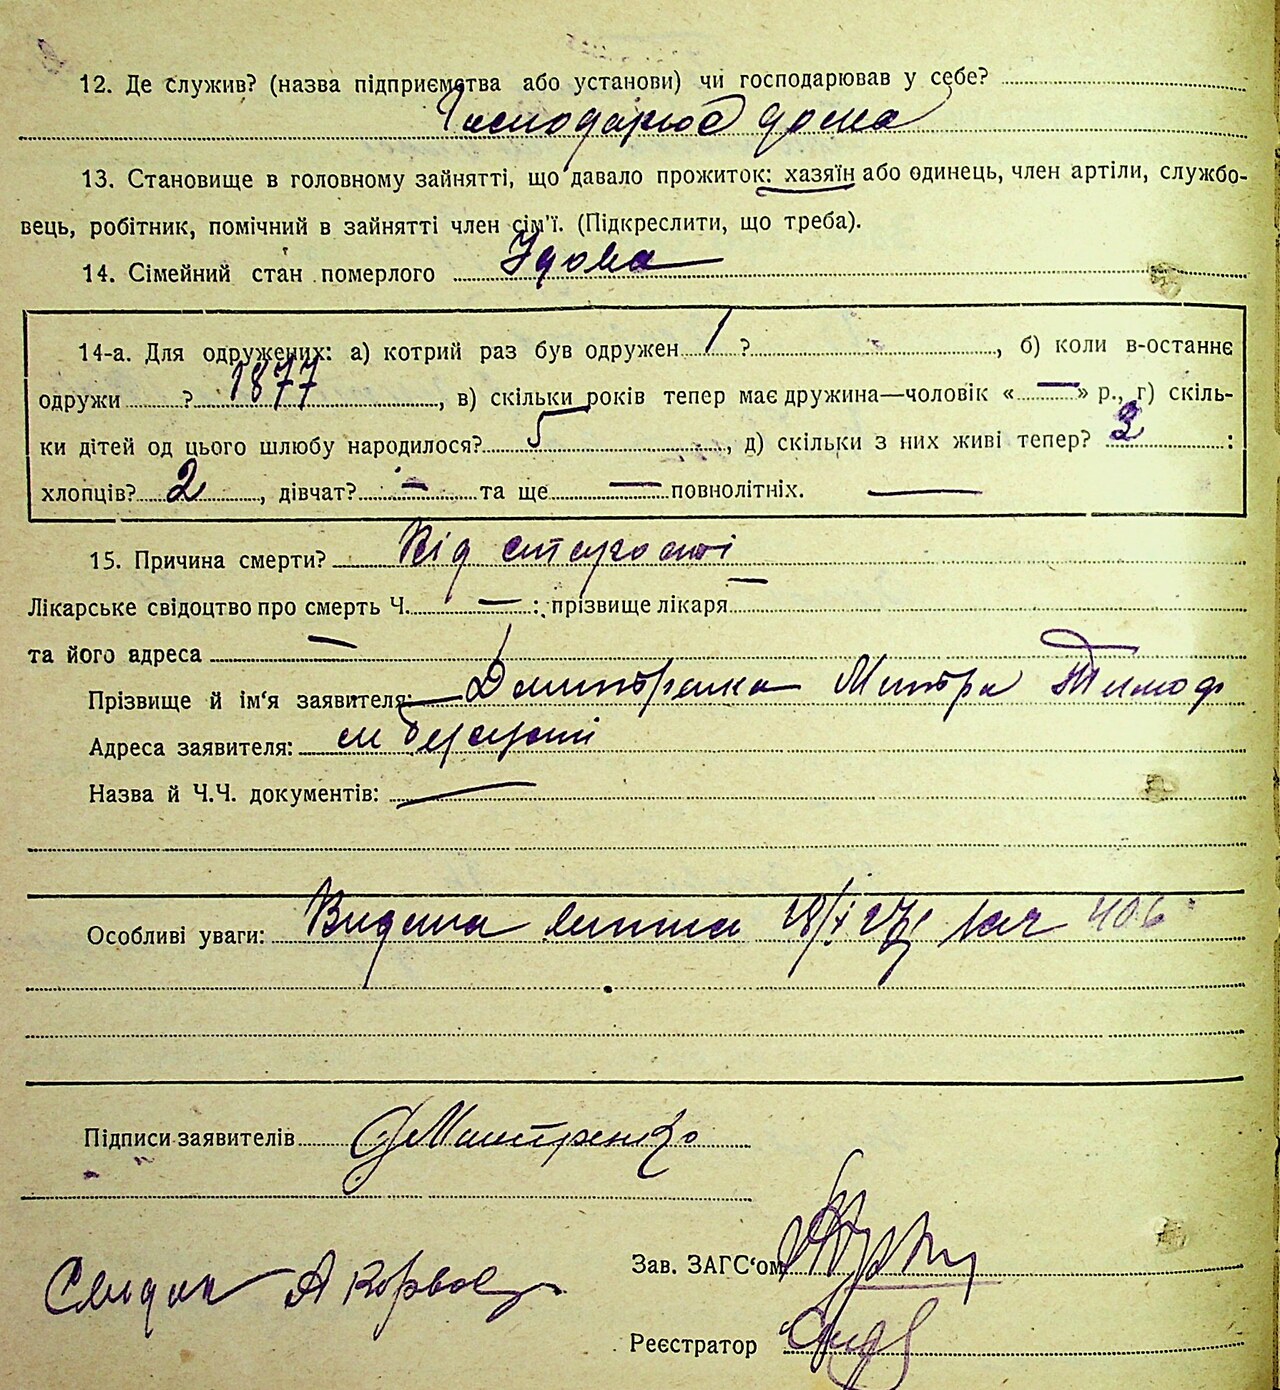 12. Де служив? (назва підприємства або установи) чи господарював у себе?
Господарюв дома
13. Становище в головному зайнятті, що давало прожиток: хазяїн або одинець, член артіли, службо-
вець, робітник, помічний в зайнятті член сім'ї. (Підкреслити, що треба).
14. Сімейний стан померлого Удова
14-а. Для одружених: а) котрий раз був одружен 1 ?, б) коли в-останнє
одружи ? 1877, в) скільки років тепер має дружина—чоловік «—» р., г) скіль-
ки дітей од цього шлюбу народилося? 5, д) скільки з них живі тепер? 3 :
хлопців? 2, дівчат? — та ще — повнолітніх. —
15. Причина смерти? Від старости
Лікарське свідоцтво про смерть Ч. — : прізвище лікаря —
та його адреса —
Прізвище й ім‘я заявителя: Митра
Адреса заявителя: м
Назва й Ч.Ч. документів: —
Особливі уваги: Видана 406
Підписи заявителів
Зав. ЗАГС‘ом
Реєстратор